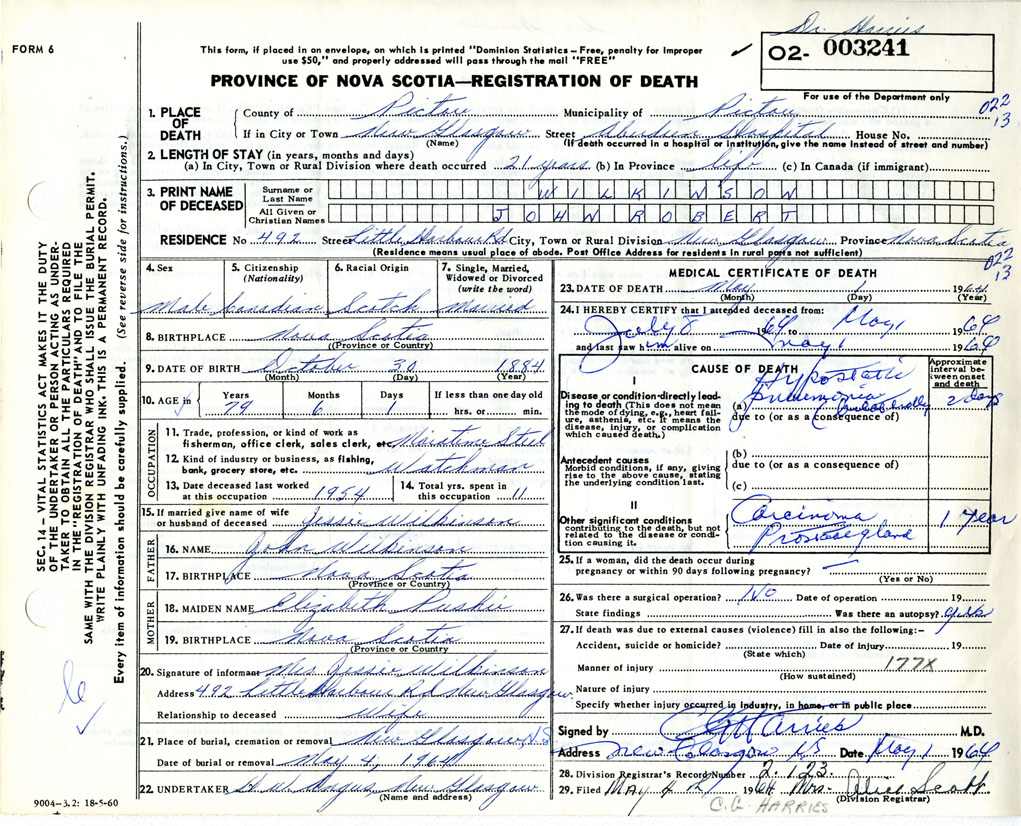 Dr. Harries
FORM 6
This form, if placed in an envelope, on which is printed "Dominion Statistics – Free, penalty for improper
use $50," and properly addressed will pass through the mail "FREE"
✓ 02- 003241
PROVINCE OF NOVA SCOTIA—REGISTRATION OF DEATH
For use of the Department only
022
13
1. PLACE OF DEATH { County of Pictou Municipality of Pictou
If in City or Town New Glasgow Street Aberdeen Hospital House No.
(Name) (If death occurred in a hospital or institution, give the name instead of street and number)
2. LENGTH OF STAY (in years, months and days)
(a) In City, Town or Rural Division where death occurred 21 years (b) In Province life (c) In Canada (if immigrant)
3. PRINT NAME OF DECEASED { Surname or Last Name WILKINSON
All Given or Christian Names JOHN ROBERT
RESIDENCE No 492 Street Little Harbour Rd City, Town or Rural Division New Glasgow Province Nova Scotia
(Residence means usual place of abode. Post Office Address for residents in rural parts not sufficient)
022
13
4. Sex 5. Citizenship (Nationality) 6. Racial Origin 7. Single, Married, Widowed or Divorced (write the word)
Male Canadian Scotch Married
8. BIRTHPLACE Nova Scotia
(Province or Country)
9. DATE OF BIRTH October 30 1884
(Month) (Day) (Year)
10. AGE in Years Months Days If less than one day old
79 6 1 hrs. or min.
OCCUPATION
11. Trade, profession, or kind of work as
fisherman, office clerk, sales clerk, etc. Maritime Steel
12. Kind of industry or business, as fishing,
bank, grocery store, etc. Watchman
13. Date deceased last worked at this occupation 1954 14. Total yrs. spent in this occupation 11
15. If married give name of wife
or husband of deceased Jessie Wilkinson
FATHER
16. NAME John Wilkinson
17. BIRTHPLACE Nova Scotia
(Province or Country)
MOTHER
18. MAIDEN NAME Elizabeth
19. BIRTHPLACE Nova Scotia
(Province or Country)
20. Signature of informant Mrs Jessie Wilkinson
Address 492 Little Harbour Rd New Glasgow
Relationship to deceased Wife
21. Place of burial, cremation or removal New Glasgow, N.S
Date of burial or removal May 4, 1964
22. UNDERTAKER H.W. Angus New Glasgow
(Name and address)
9004–3.2: 18-5-60
MEDICAL CERTIFICATE OF DEATH
23. DATE OF DEATH May 1 1964
(Month) (Day) (Year)
24. I HEREBY CERTIFY that I attended deceased from:
July 8 1964 to May 1 1964
and last saw him alive on May 1 1964
CAUSE OF DEATH Approximate interval between onset and death
I
Disease or condition directly leading to death (This does not mean
the mode of dying, e.g., heart failure, asthenia, etc. It means the
disease, injury, or complication
which caused death.)
(a) Hypostatic Pneumonia 2 days
due to (or as a consequence of)
Antecedent causes
Morbid conditions, if any, giving
rise to the above cause, stating
the underlying condition last.
(b)
due to (or as a consequence of)
(c)
II
Other significant conditions
contributing to the death, but not
related to the disease or condition causing it.
Carcinoma 1 Year
Prostate gland
25. If a woman, did the death occur during
pregnancy or within 90 days following pregnancy? —
(Yes or No)
26. Was there a surgical operation? No Date of operation 19
State findings Was there an autopsy?
27. If death was due to external causes (violence) fill in also the following:–
Accident, suicide or homicide? Date of injury 19
(State which)
Manner of injury 177X
(How sustained)
Nature of injury
Specify whether injury occurred in industry, in home, or in public place
Signed by C G Harries M.D.
Address New Glasgow NS Date May 1 1964
28. Division Registrar's Record Number 2123
29. Filed MAY 4 1964 Mrs. Alice Scott
(Division Registrar)
C. G. HARRIES
SEC. 14 – VITAL STATISTICS ACT MAKES IT THE DUTY
OF THE UNDERTAKER OR PERSON ACTING AS UNDERTAKER TO OBTAIN ALL THE PARTICULARS REQUIRED
IN THE "REGISTRATION OF DEATH" AND TO FILE THE
SAME WITH THE DIVISION REGISTRAR WHO SHALL ISSUE THE BURIAL PERMIT.
WRITE PLAINLY WITH UNFADING INK. THIS IS A PERMANENT RECORD.
Every item of information should be carefully supplied. (See reverse side for instructions.)